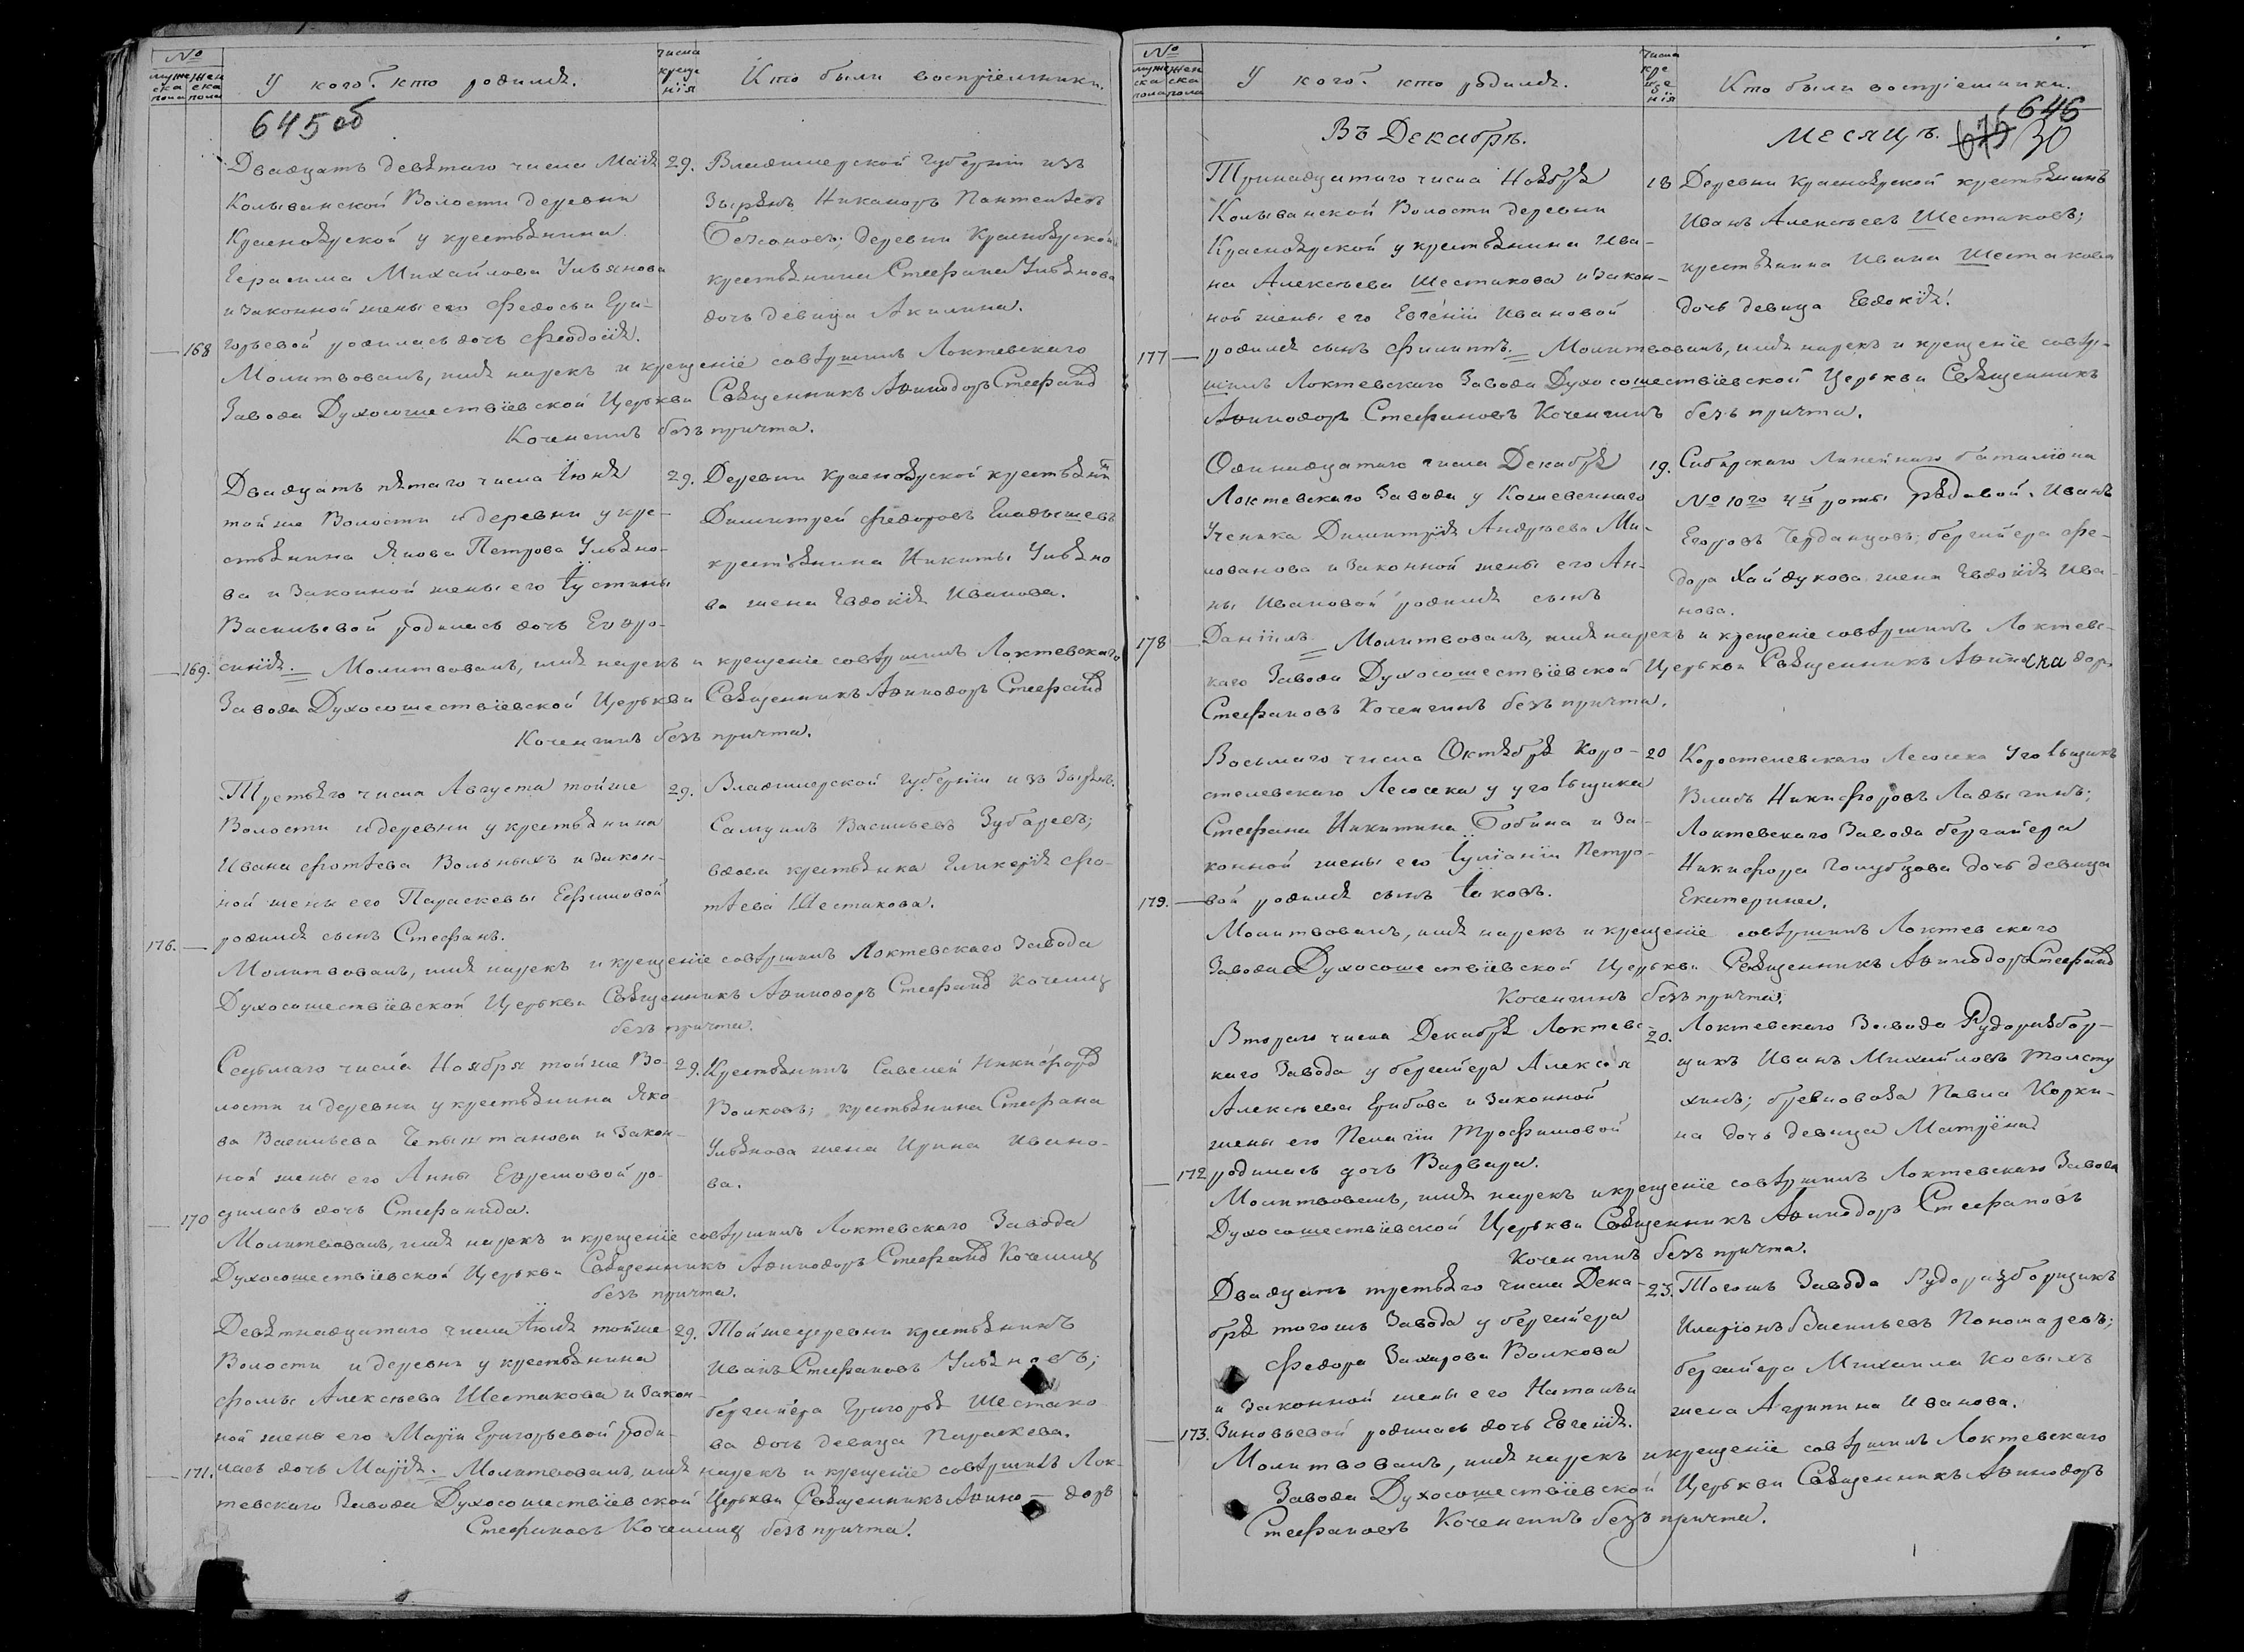 №
муже
ска
пола
жен
ска
пола
У кого? кто родился.
числа
креще
нія
Кто были воспріемники.
645 об
Двадцать девятаго числа Маія
Колыванской Волости деревни
Красноярской у крестьянина
Герасима Михайлова Ульянова
и законной жены его Федосьи Гри-
168 горьевой родилась дочь Феодосія.
29. Владимерской Губерніи изъ
Никаноръ Пантелѣевъ
деревни Красноярской
крестьянина Стефана Ульянова
дочь девица Акилина.
Молитвовалъ, имя нарекъ и крещеніе совершилъ Локтевскаго
Завода Духосошествіевской Церькви Священникъ Аѳинодоръ Стефанов
Коченгинъ безъ причта.
Двадцать пятаго числа Іюня
той же Волости и деревни у кре-
стьянина Якова Петрова Ульяно-
ва и законной жены его Іустины
Васильевой родилась дочь Евфро-
29. Деревни Красноярской крестьянин
Димитрей Федоровъ
крестьянина Никиты Ульяно
ва жена Евдокія Иванова.
169. синія. Молитвовалъ, имя нарекъ и крещеніе совершилъ Локтевскаго
Завода Духосошествіевской Церькви Священникъ Аѳинодоръ Стефанов
Коченгинъ безъ причта.
Третьяго числа Августа той же
Волости и деревни у крестьянина
Ивана Фотѣева Вольныхъ и закон-
ной жены его Параскевы Ефимовой
176. родился сынъ Стефанъ.
29. Владимерской губерніи изъ
Самуилъ Васильевъ Зубаревъ;
вдова крестьянка Гликерія Фо-
тѣева Шестакова.
Молитвовалъ, имя нарекъ и крещеніе совершилъ Локтевскаго Завода
Духосошествіевской Церькви Священникъ Аѳинодоръ Стефанов Коченгин
безъ причта.
Седьмаго числа Ноября той же Во-
лости и деревни у крестьянина Яко
ва Васильева и закон-
ной жены его Анны Ефремовой ро-
170 дилась дочь Стефанида.
29. Крестьянинъ Савелей Никифоров
Волковъ; крестьянина Стефана
Ульянова жена Ирина Ивано-
ва.
Молитвовалъ, имя нарекъ и крещеніе совершилъ Локтевскаго Завода
Духосошествіевской Церькви Священникъ Аѳинодоръ Стефанов Коченгин
безъ причта.
Девятнадцатаго числа Іюля той же
Волости и деревни у крестьянина
Фомы Алексѣева Шестакова и закон-
ной жены его Маріи Григорьевой роди-
29. Той же деревни крестьянинъ
Иванъ Стефановъ Ульяновъ;
бергайера Григорья Шестако
ва дочь девица Параскева.
171. лась дочь Марія. Молитвовалъ, имя нарекъ и крещеніе совершилъ Лок-
тевскаго Завода Духосошествіевской Церькви Священникъ Аѳино — доръ
Стефановъ Коченгин безъ причта.
№
муже
ска
пола
жен
ска
пола
У кого? кто родился.
числа
кре
ще
нія
Кто были воспріемники.
646
Въ Декабрѣ. месяцъ. 675 30
Тринадцатаго числа Ноября
Колыванской Волости деревни
Красноярской у крестьянина Ива-
на Алексѣева Шестакова и закон-
ной жены его Евгеніи Ивановой
18 Деревни Красноярской крестьянинъ
Иванъ Алексѣевъ Шестаковъ;
крестьянина Ивана Шестакова
дочь девица Евдокія.
177 родился сынъ Филиппъ. Молитвовалъ, имя нарекъ и крещеніе совер-
шилъ Локтевскаго Завода Духосошествіевской Церькви Священникъ
Аѳинодоръ Стефановъ Коченгинъ безъ причта.
Одинадцатаго числа Декабря
Локтевскаго Завода у
Ученика Димитрія Андреева Ми-
лованова и законной жены его Ан-
ны Ивановой родился сынъ
19. Сибирскаго Линейнаго баталіона
№ 10го 4й роты рядовой. Иванъ
Егоровъ Черданцовъ; бергайера Фе-
дора Хайдукова жена Евдокія Ива-
нова.
178 Даніилъ. Молитвовалъ, имя нарекъ и крещеніе совершилъ Локтевс-
каго Завода Духосошествіевской Церькви Священникъ доръ
Стефановъ Коченгинъ безъ причта.
Восьмаго числа Октября Коро-
стелевскаго Лесосека у угольщика
Стефана Никитина Бобина и за-
конной жены его Іуліаніи Петро-
179. вой родился сынъ Іаковъ.
20 Коростелевскаго Лесосека Угольщикъ
Власъ Никифоровъ Ладыгинъ;
Локтевскаго Завода бергайера
Никифора Голубцова дочь девица
Екатерина.
Молитвовалъ, имя нарекъ и крещеніе совершилъ Локтевскаго
Завода Духосошествіевской Церькви Священникъ Аѳинодоръ Стефанов
Коченгинъ безъ причта.
Втораго числа Декабря Локтевс-
каго Завода у бергайера Алексѣя
Алексѣева Грибова и законной
жены его Пелагіи Трофимовой
172 родилась дочь Варвара.
20. Локтевскаго Завода Рудоразбор-
щикъ Иванъ Михайловъ Толсту
хинъ; бревновоза Павла Корки-
на дочь девица Матрёна.
Молитвовалъ, имя нарекъ и крещеніе совершилъ Локтевскаго Завода
Духосошествіевской Церькви Священникъ Аѳинодоръ Стефановъ
Коченгинъ безъ причта.
Двадцать третьяго числа Дека-
бря тогожъ Завода у бергайера
Федора Захарова Волкова
и законной жены его Натальи
173. Зиновьевой родилась дочь Евгенія.
23. Тогожъ Завода Рудоразборщикъ
Иларіонъ Васильевъ Пономаревъ;
бергайера Михаила Косыхъ
жена Агрипина Иванова.
Молитвовалъ, имя нарекъ и крещеніе совершилъ Локтевскаго
Завода Духосошествіевской Церькви Священникъ Аѳинодоръ
Стефановъ Коченгинъ безъ причта.